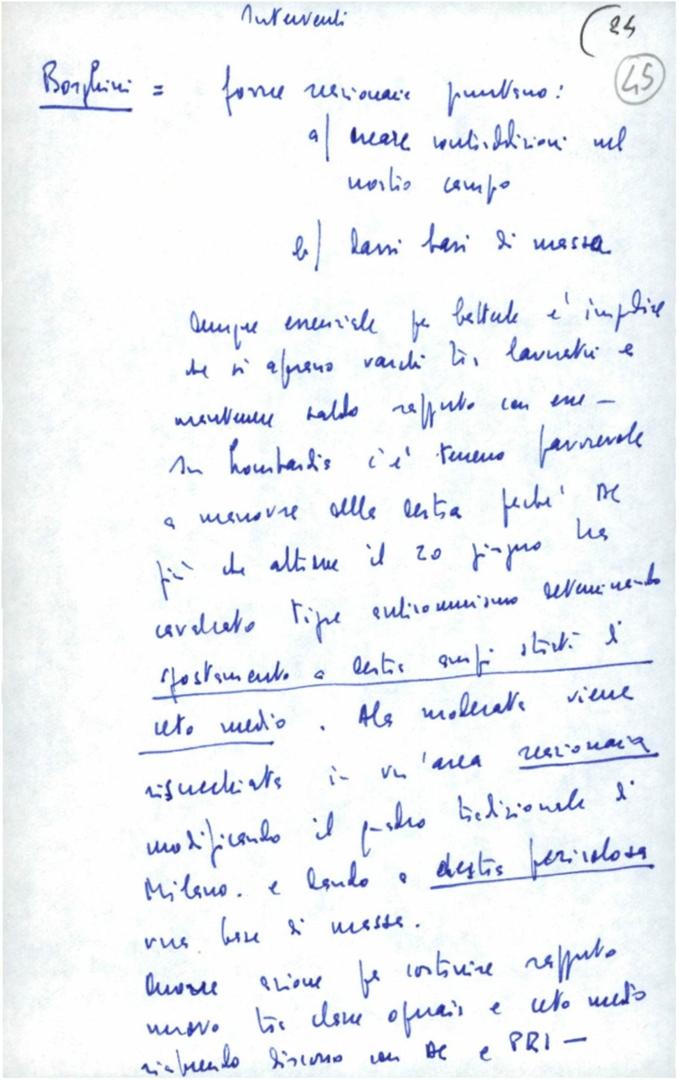 Interventi
24
45
Borghini = forze reazionarie puntano:
a) creare contraddizioni nel
nostro campo
b) darsi basi di massa
Dunque essenziale per batterle è impedire
che si aprano varchi tra lavoratori e
mantenere saldo rapporto con esse -
In Lombardia c'è terreno favorevole
a manovre della destra perché DC
più che altrove il 20 giugno ha
cavalcato tigre anticomunismo determinando
spostamento a destra ampi strati di
ceto medio. Ala moderata viene
risucchiata in un'area reazionaria
modificando il quadro tradizionale di
Milano. e dando a destra pericolosa
una base di massa.
azione per costruire rapporto
nuovo tra classe operaia e ceto medio
riaprendo discorso con DC e PRI -